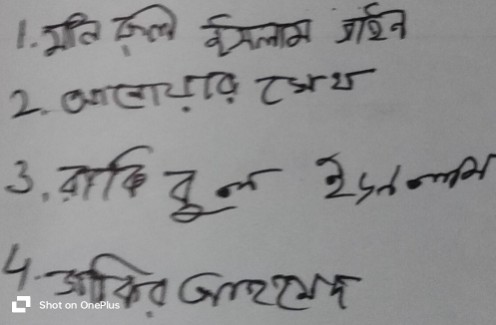 1. মতি রুল ইসলাম শাহিন
2. আনোয়ার সেখ
3. রাকিবুল ইসলাম
4. জাকির আহমেদ
Shot on OnePlus